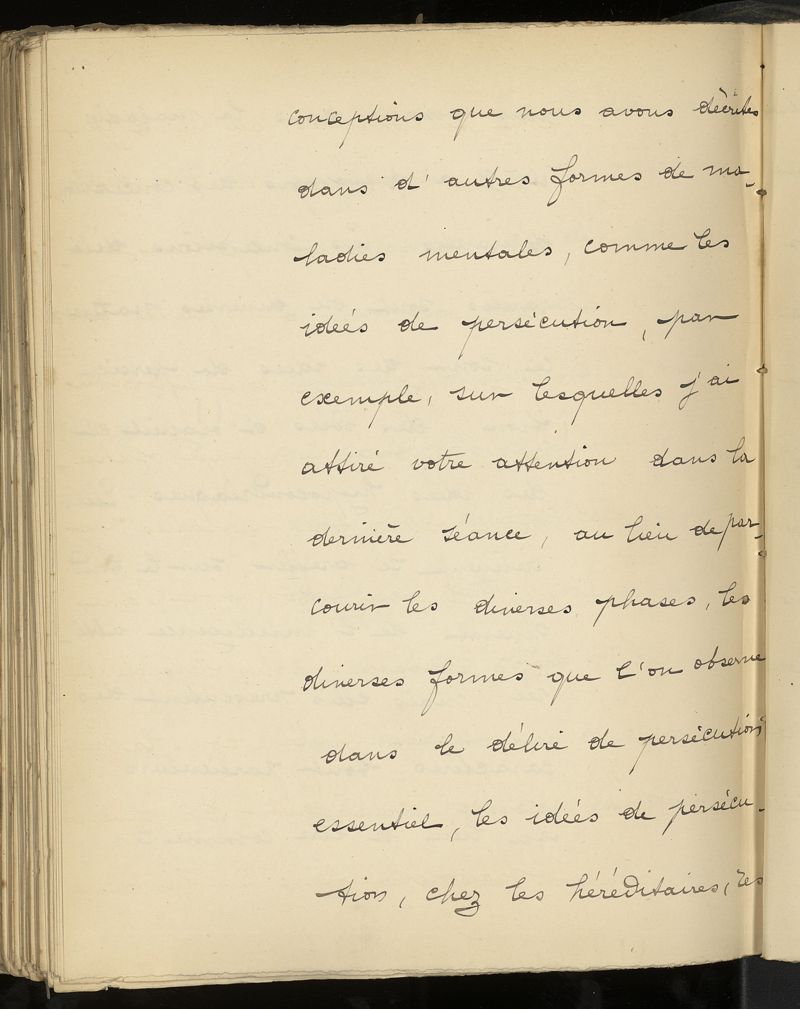 conceptions que nous avons décrites
dans d'autres formes de ma-
ladies mentales, comme les
idées de persécution, par
exemple, sur lesquelles j'ai
attiré votre attention dans la
dernière séance, au lieu de par-
courir les diverses phases, les
diverses formes que l'on observe
dans le délire de persécution
essentiel, les idées de persécu-
tion, chez les héréditaires, les